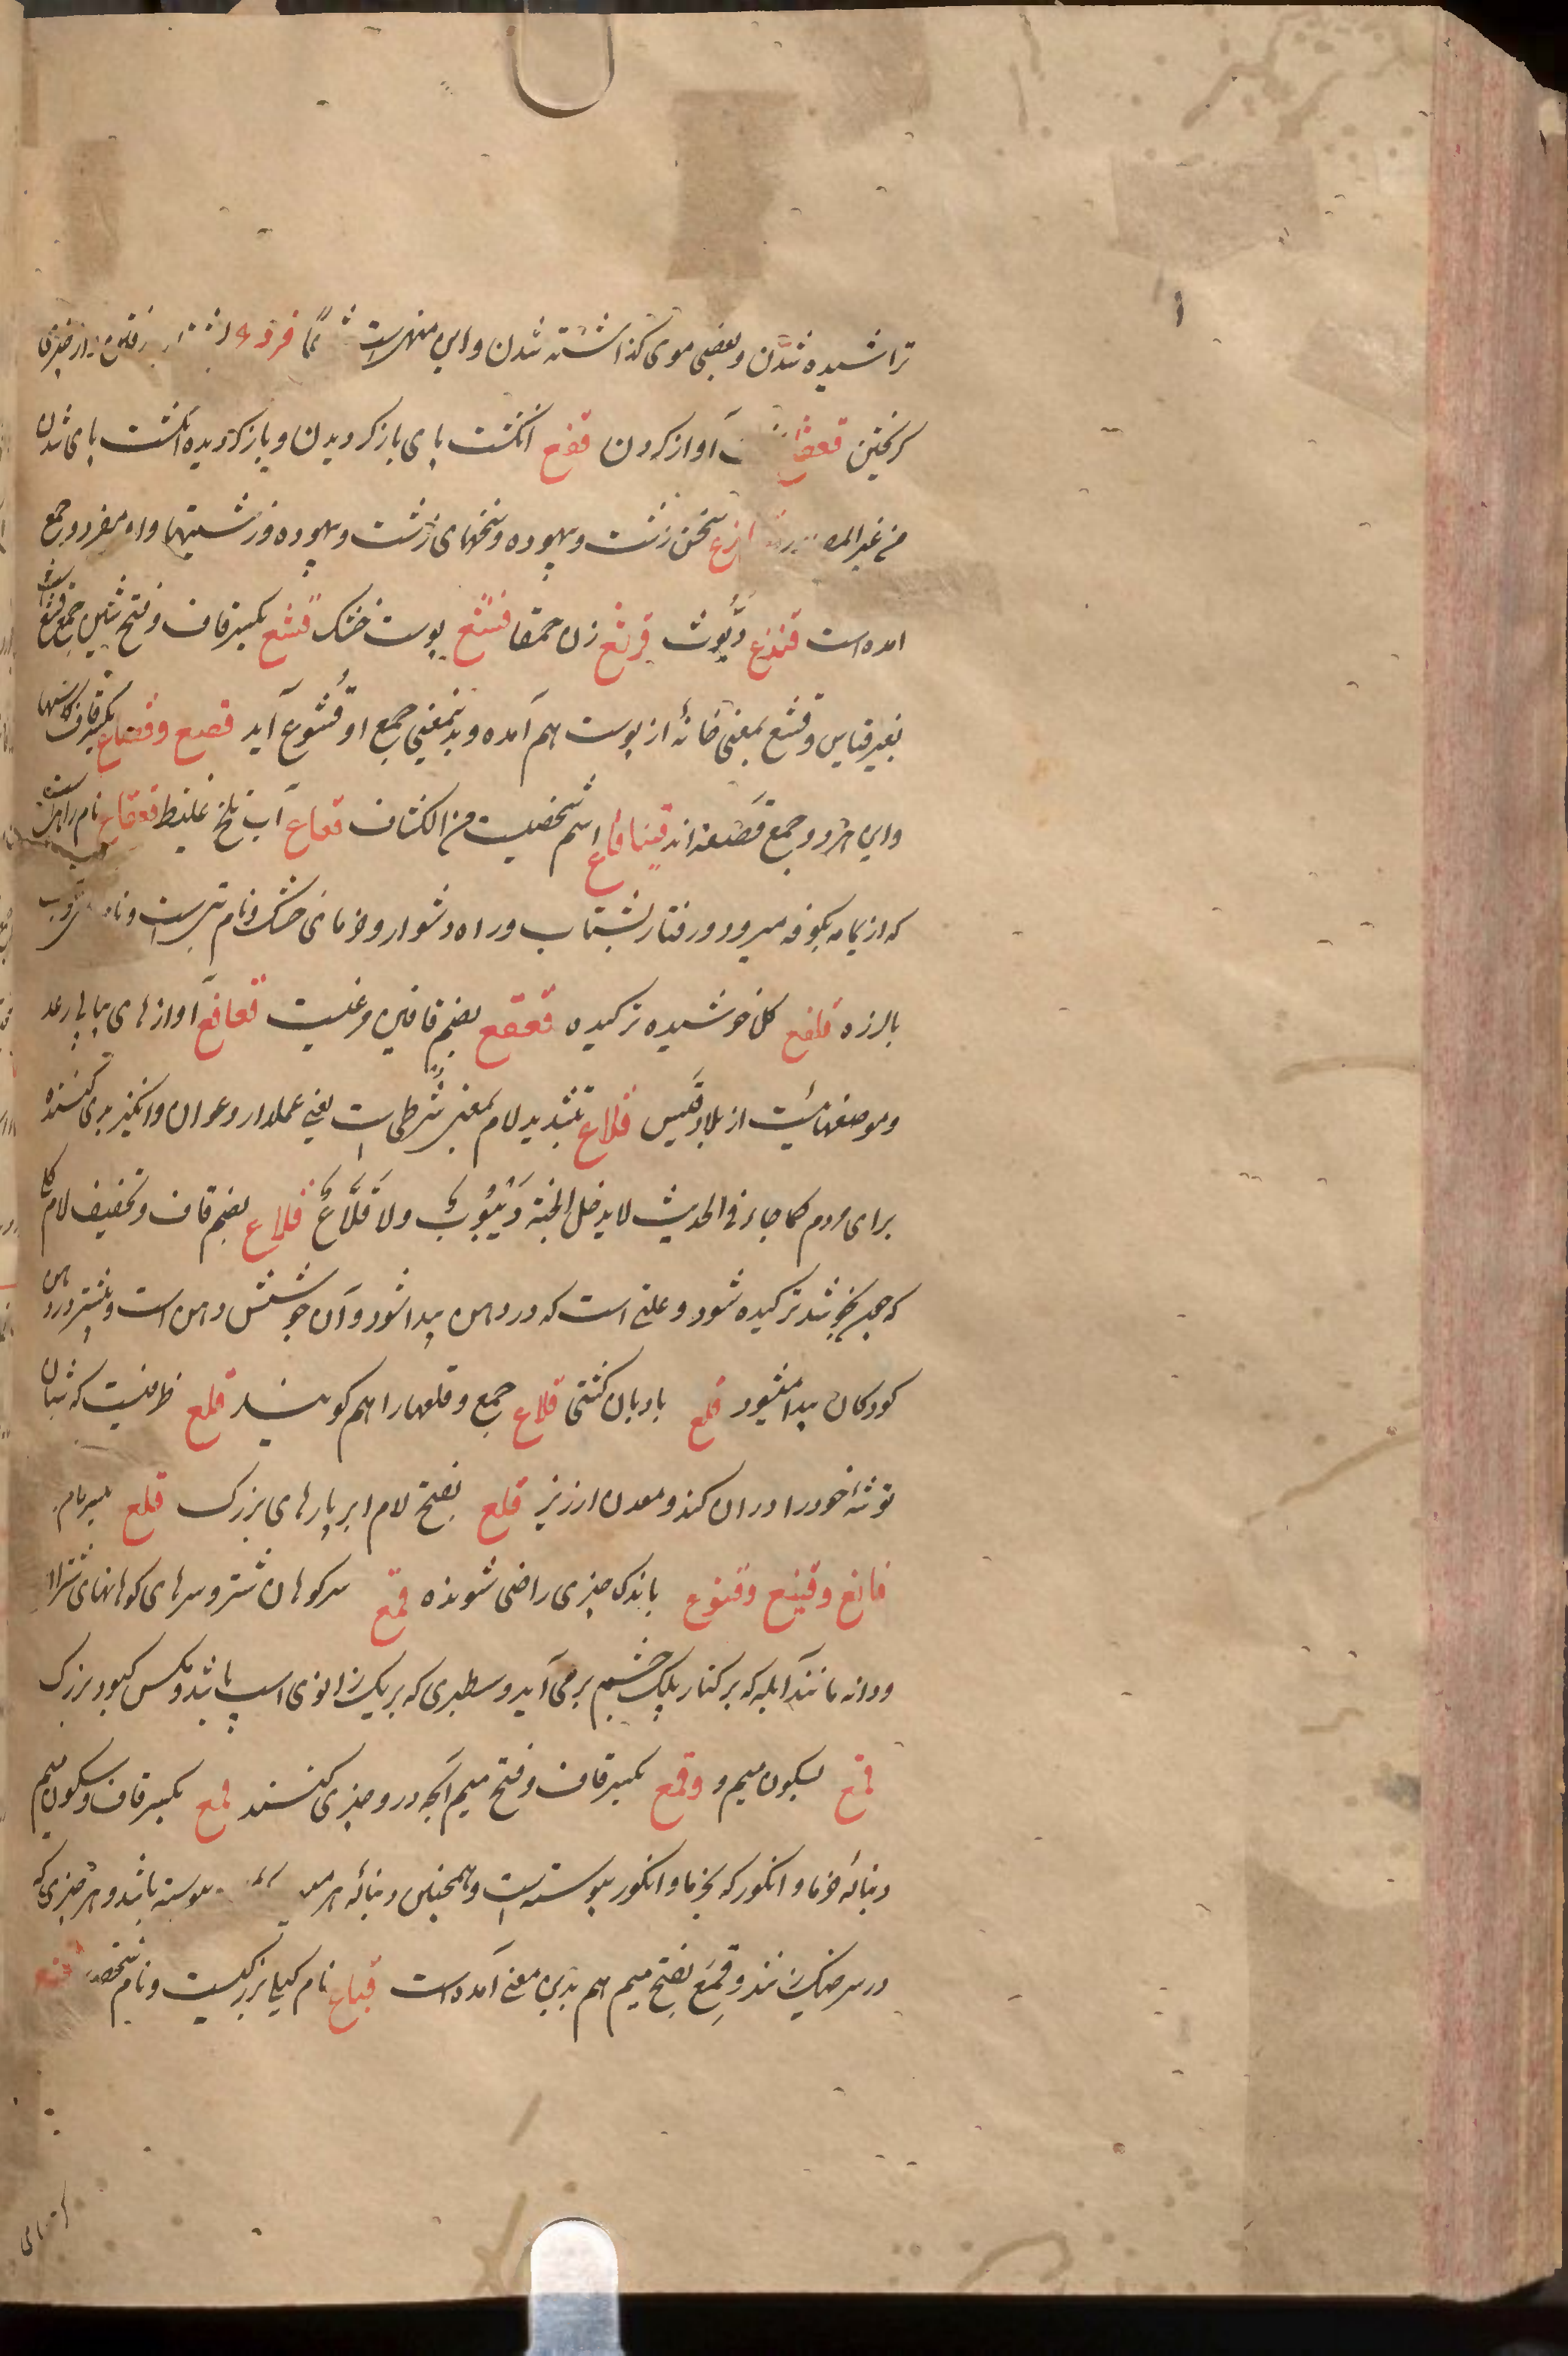 تراشیده شدن و بعضی موی گذاشته شدن و این منهی است
کریختن آواز کردن قفع انکشت پای باز کردیدن و باز کردیده انکشت پای شدن
من غیر سخن زشت و بیهوده و سخنهای زشت و بیهوده و زشتیها واو مفرد و جمع
امده است قندع دیوث قرثع زن حمقا قشع پوست خشک قشع بکسر قاف و فتح شین جمع قشع است
بغیر قیاس و قشع بمعنی خانهٔ از پوست هم آمده و بدینمعنی جمع او قُشوع آید قصع و قصاع بکسر قاف کاسها
و این هردو جمع قَصْعه اند قینقاع اسم شخصیست من الکشاف قعاع آب تلخ غلیظ قعقاع نام راهیست
که از یمامه بکوفه میرود و رفتار بشتاب و راه دشوار و خرمای خشک و نام تبی است و
بالرزه قلفع کل خوشیده ترکیده قعقع بضم قافین مرغیست قعاقع آوازهای پیاپی رعد
و موضعهائیست از بلاد قیس قلاع بتشدید لام بمعنی شُرطی است یعنی عملدار و عوان و انکیز بدی کننده
برای مردم کما جاء فی الحدیث لا یدخل الجنة دَیْبُوبٌ ولا قَلَّاعٌ قلاع بضم قاف و تخفیف لام کل
که چون بخوشد ترکیده شود و علتی است که در دهن پیدا شود و آن جوشش دهن است و بیشتر در دهن
کودکان پیدا میشود قلع بادبان کشتی قلاع جمع و قلعها را هم کویند قلع ظرفیست که شبان
توشهٔ خود را در ان کند و معدن ارزیز قلع بفتح لام ابر پارهای بزرک قلع
قانع و قنیع و قنوع باندک چیزی راضی شونده قمع سر کوهان شتر و سرهای کوهانهای شتران
و دانه مانند آبله که بر کنار پلک چشم بر می آید و سطبری که بر یک زانوی اسپ باشد و مکس کبود بزرک
قمع بسکون میم و وقمع بکسر قاف و فتح میم آنچه در و چیزی کنند قمع بکسر قاف و سکون میم
دنبالهٔ خرما و انکور که بخرما و انکور پیوسته است و همچنین دنبالهٔ هر پیوسته باشد و هر چیزی که
در سر خیک زنند و قِمَع بفتح میم هم بدین معنی آمده است قباع نام کیل بزرکیست و نام